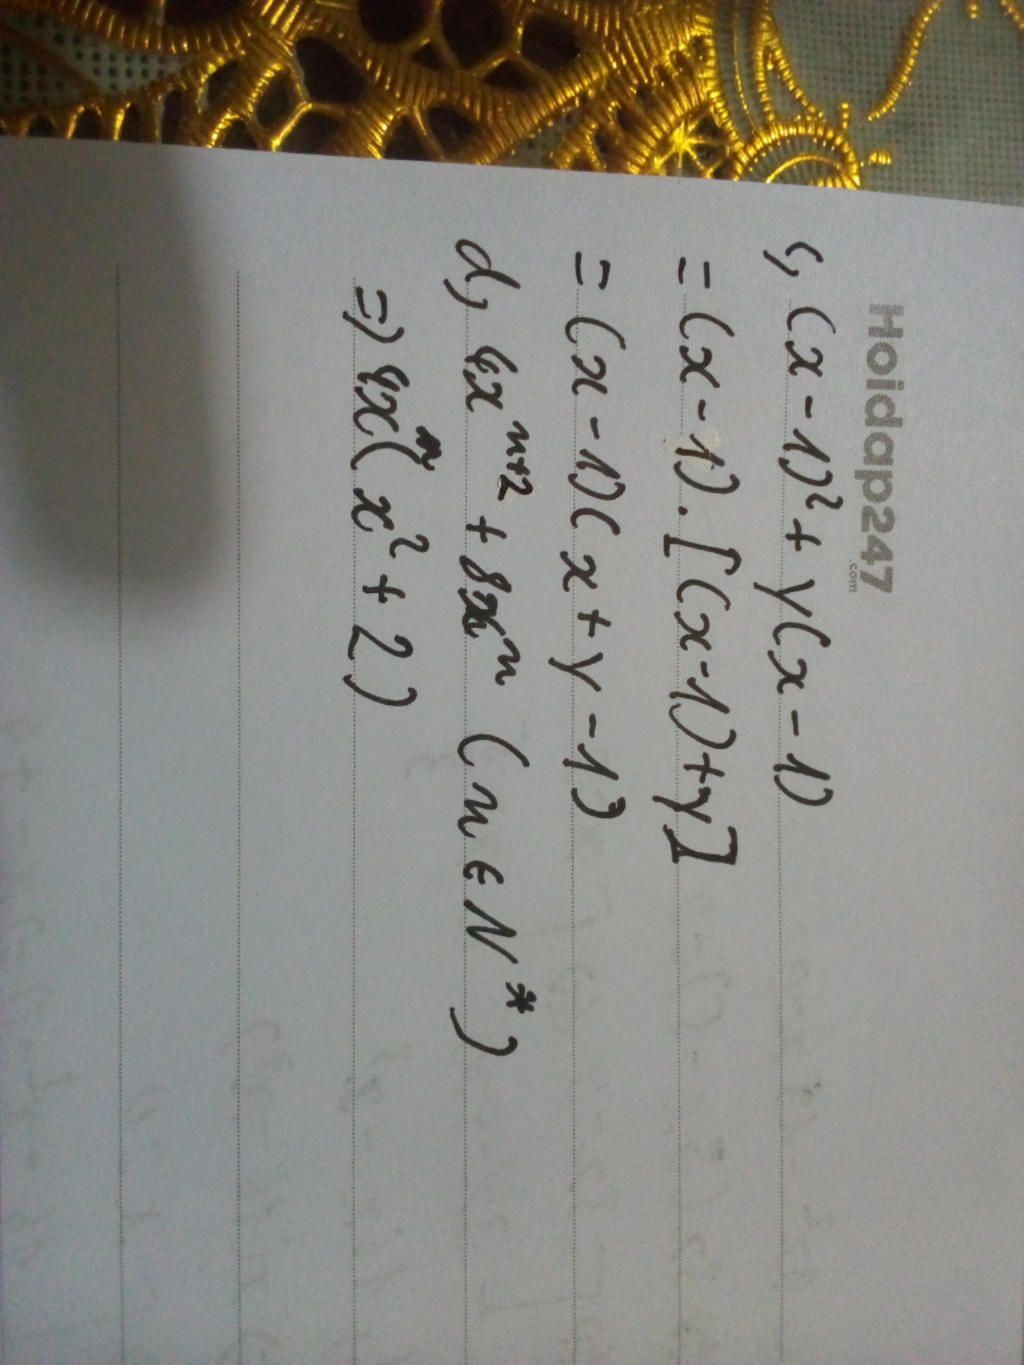 Hoidap247
.com
c, (x-1)² + y(x-1)
= (x-1).[(x-1)+y]
= (x-1)(x+y-1)
d, 4xⁿ⁺² + 8xⁿ (n ∈ N*)
=> 4xⁿ(x²+2)